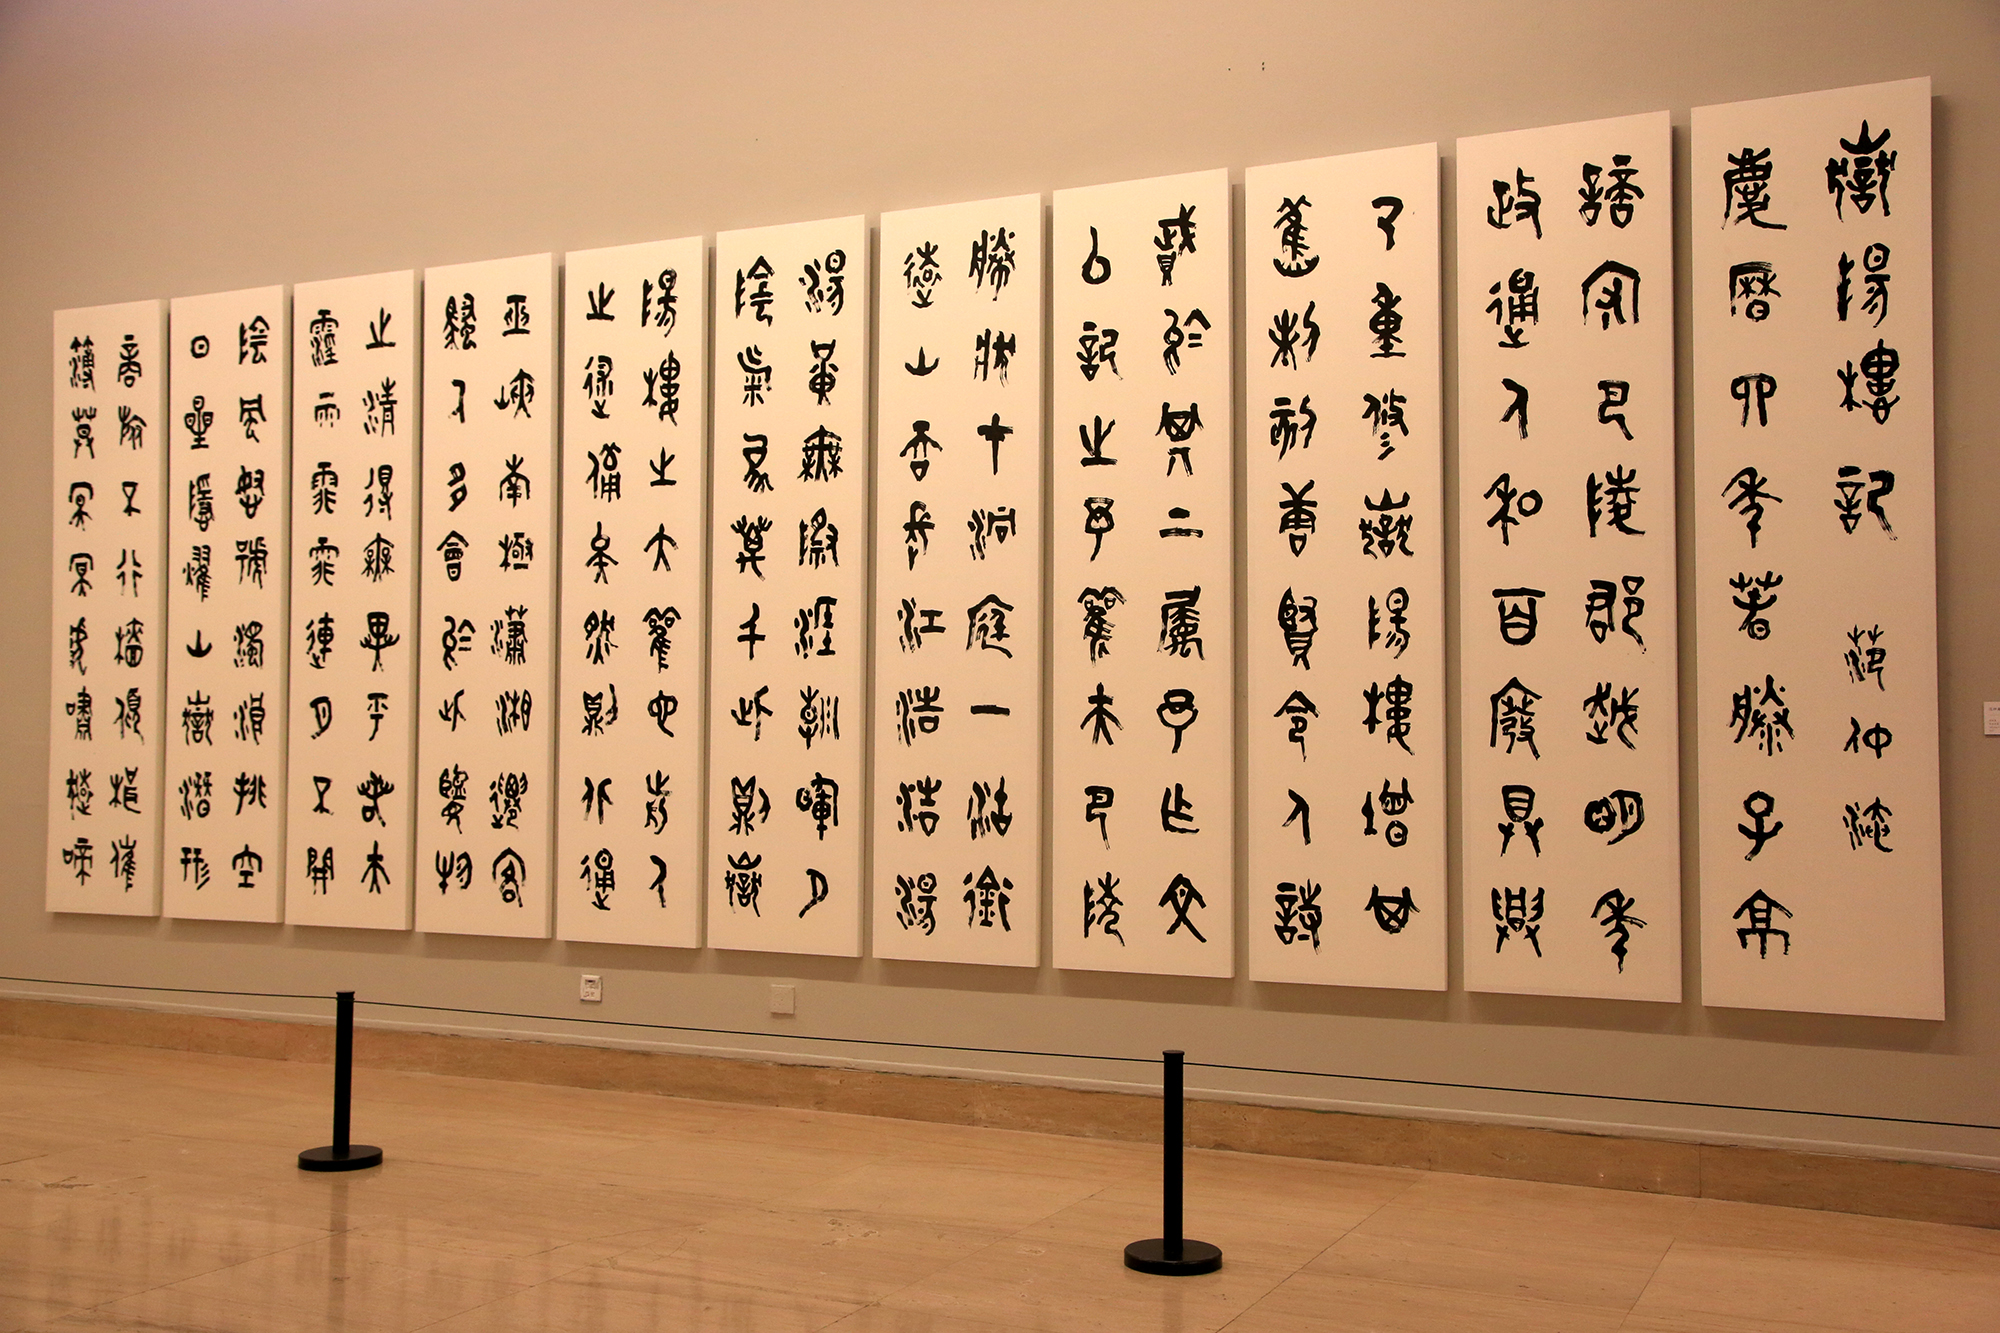 嶽陽樓記 范仲淹
慶曆四年春滕子京
謫守巴陵郡越明年
政通人和百廢具興
乃重修嶽陽樓增其
舊制刻唐賢今人詩
賦於其上屬予作文
以記之予觀夫巴陵
勝狀在洞庭一湖銜
遠山吞長江浩浩湯
湯橫無際涯朝暉夕
陰氣象萬千此則嶽
陽樓之大觀也前人
之述備矣然則北通
巫峽南極瀟湘遷客
騷人多會於此覽物
之情得無異乎若夫
霪雨霏霏連月不開
陰風怒號濁浪排空
日星隱耀山嶽潛形
商旅不行檣傾楫摧
薄暮冥冥虎嘯猿啼